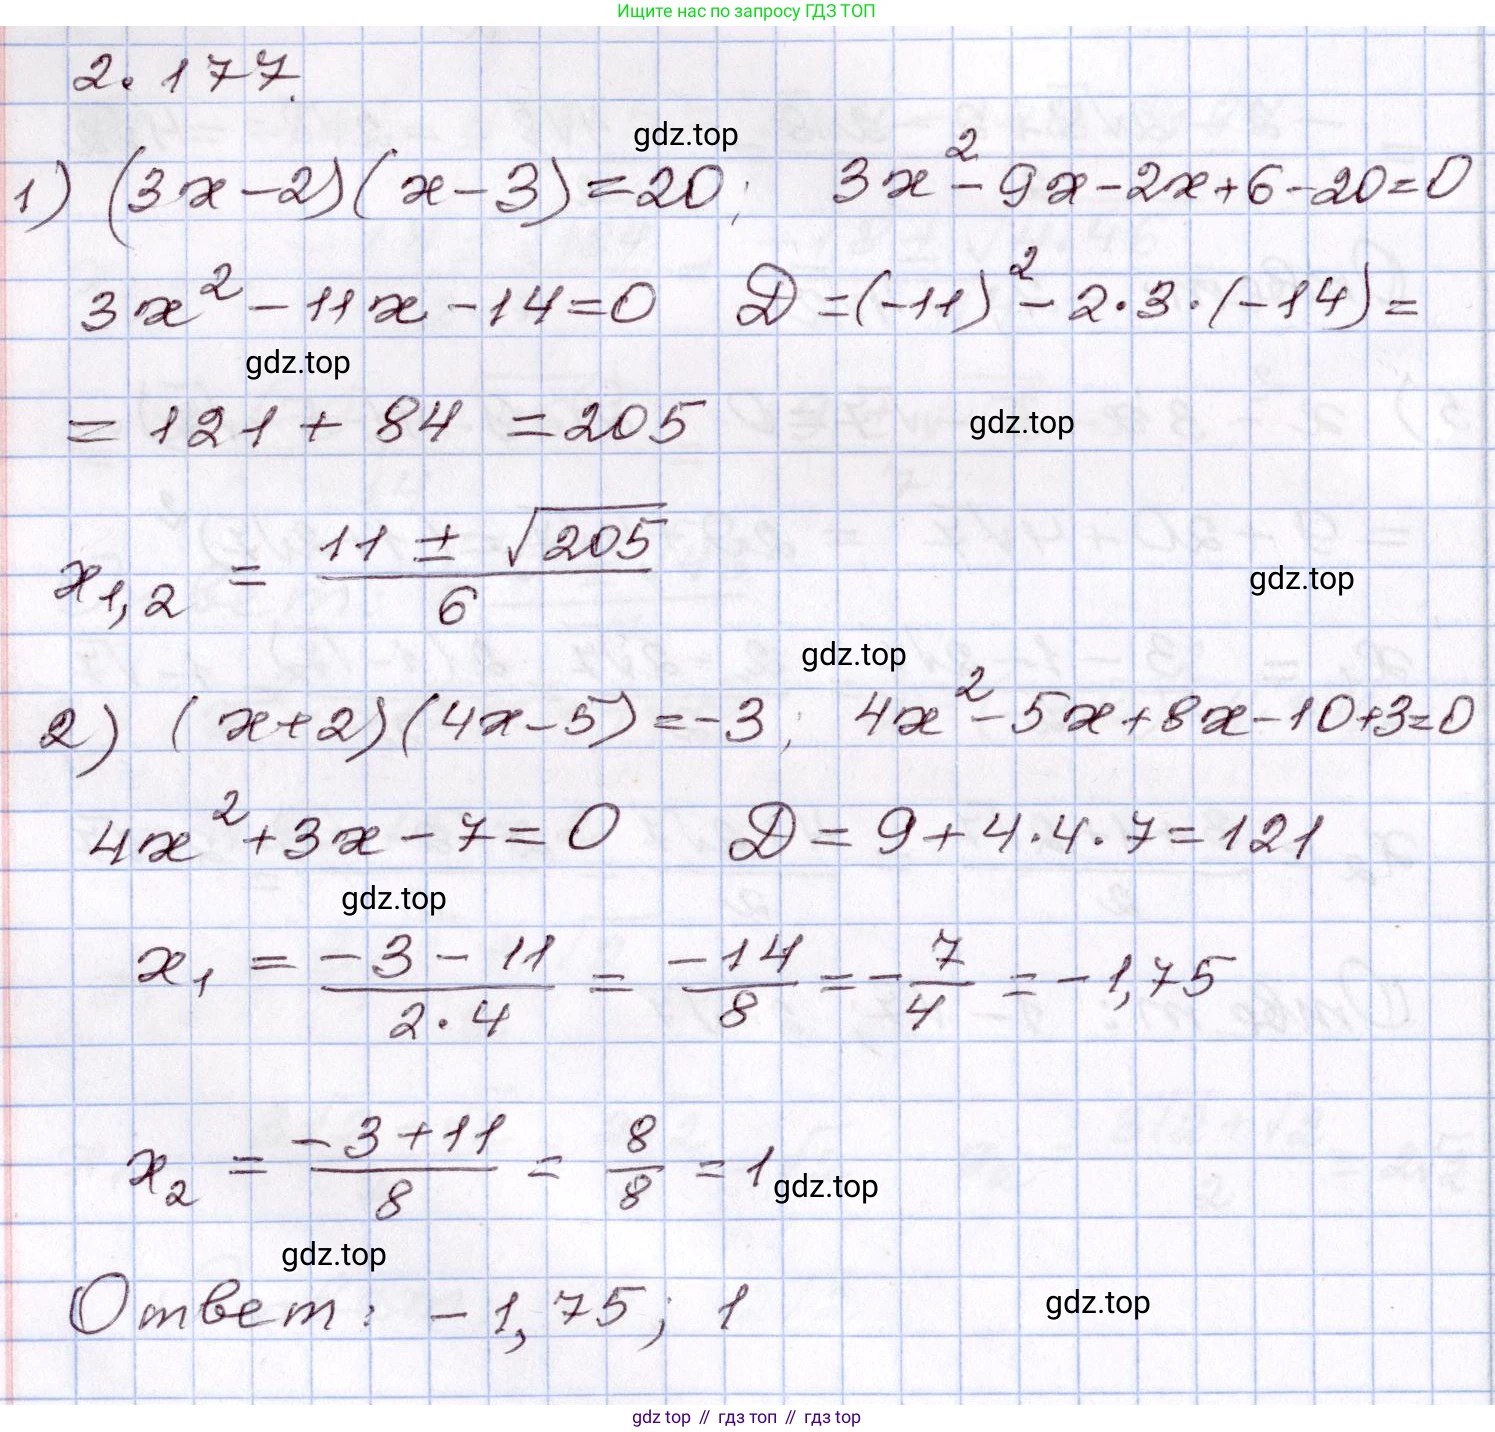 Ищите нас по запросу ГДЗ ТОП
2.177.
gdz.top
1) (3x-2)(x-3)=20; 3x²-9x-2x+6-20=0
3x²-11x-14=0 D=(-11)²-2·3·(-14)=
gdz.top
=121+84=205
gdz.top
x₁,₂ = (11±√205)/6
gdz.top
gdz.top
2) (x+2)(4x-5)=-3; 4x²-5x+8x-10+3=0
4x²+3x-7=0 D=9+4·4·7=121
gdz.top
x₁ = (-3-11)/(2·4) = -14/8 = -7/4 = -1,75
x₂ = (-3+11)/8 = 8/8 = 1
gdz.top
gdz.top
Ответ: -1,75; 1
gdz.top
gdz top // гдз топ // gdz top